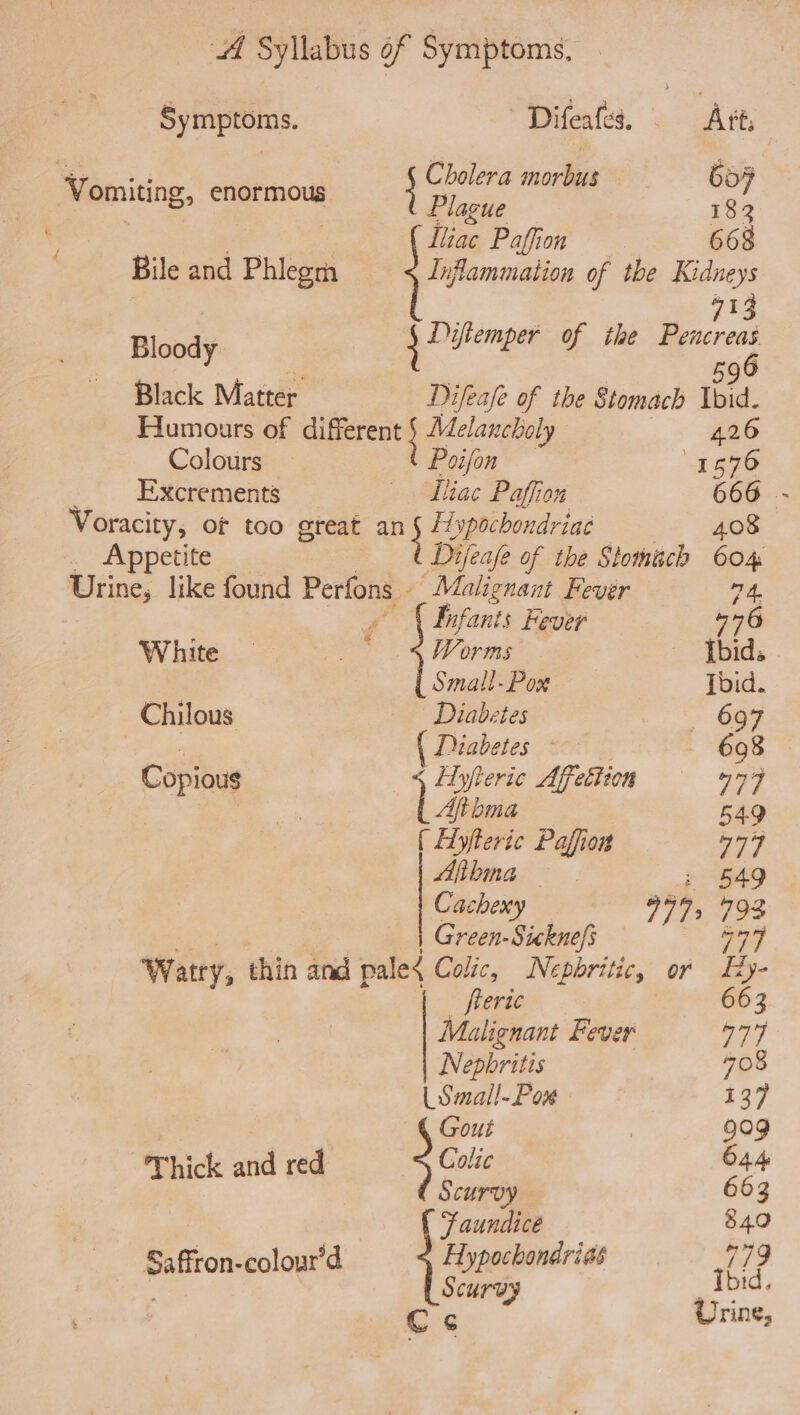 A Syllabus of Symptoms.
Symptoms. Difeaſes. Art.
Vomiting, enormous { Cholera morbus 607
Plague 182
Bile and Phlegm { Iliac Paſſion 668
Inflammation of the Kidneys
713
Bloody { Diſtemper of the Pencreas
596
Black Matter Diſeaſe of the Stomach Ibid.
Humours of different { Melancholy 426
Colours Poiſon 1576
Excrements Iliac Paſſion 666
Voracity, or too great an { Hypochondriac 408
Appetite Diſeaſe of the Stomach 604
Urine, like found Perſons Malignant Fever 74
White { Infants Fever 776
Worms Ibid.
Small-Pox Ibid.
Chilous Diabetes 697
Copious { Diabetes 698
Hyſteric Affection 777
Aſthma 549
Watry, thin and pale { Hyſteric Paſſion 777
Aſthma 549
Cachexy 777, 793
Green-Sickneſs 777
Colic, Nephritic, or Hy-
ſteric 663
Malignant Fever 777
Nephritis 708
Small-Pox 137
Thick and red { Gout 909
Colic 644
Scurvy 663
Saffron-colour'd { Jaundice 840
Hypochondrias 779
Scurvy Ibid.
C c Urine,